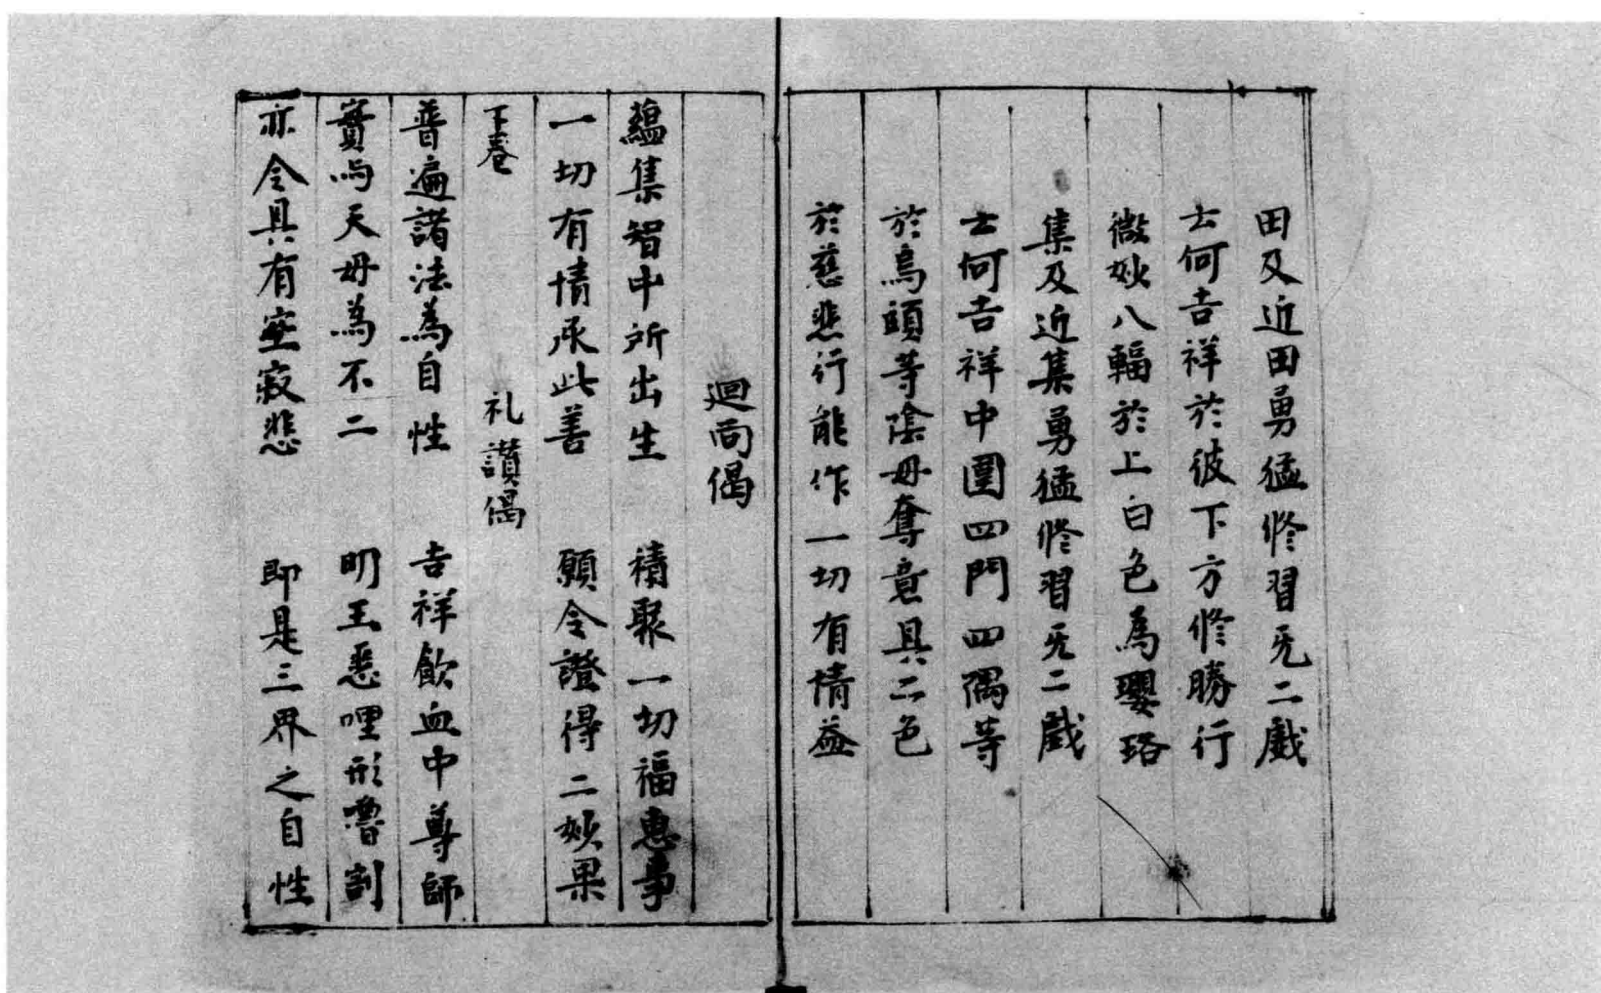 田及近田勇猛修習无二戲
士何吉祥於彼下方修勝行
微妙八輻於上白色為瓔珞
集及近集勇猛修習无二戲
士何吉祥中圍四門四隅等
於烏頭等陰母奪意具二色
於慈悲行能作一切有情益
迴向偈
蘊集智中所出生　積聚一切福惠事
一切有情承此善　願令證得二妙果
下卷　礼讃偈
普遍諸法為自性　吉祥飲血中尊師
實与天母為不二　明王惡哩形嚕割
亦令具有空寂悲　即是三界之自性